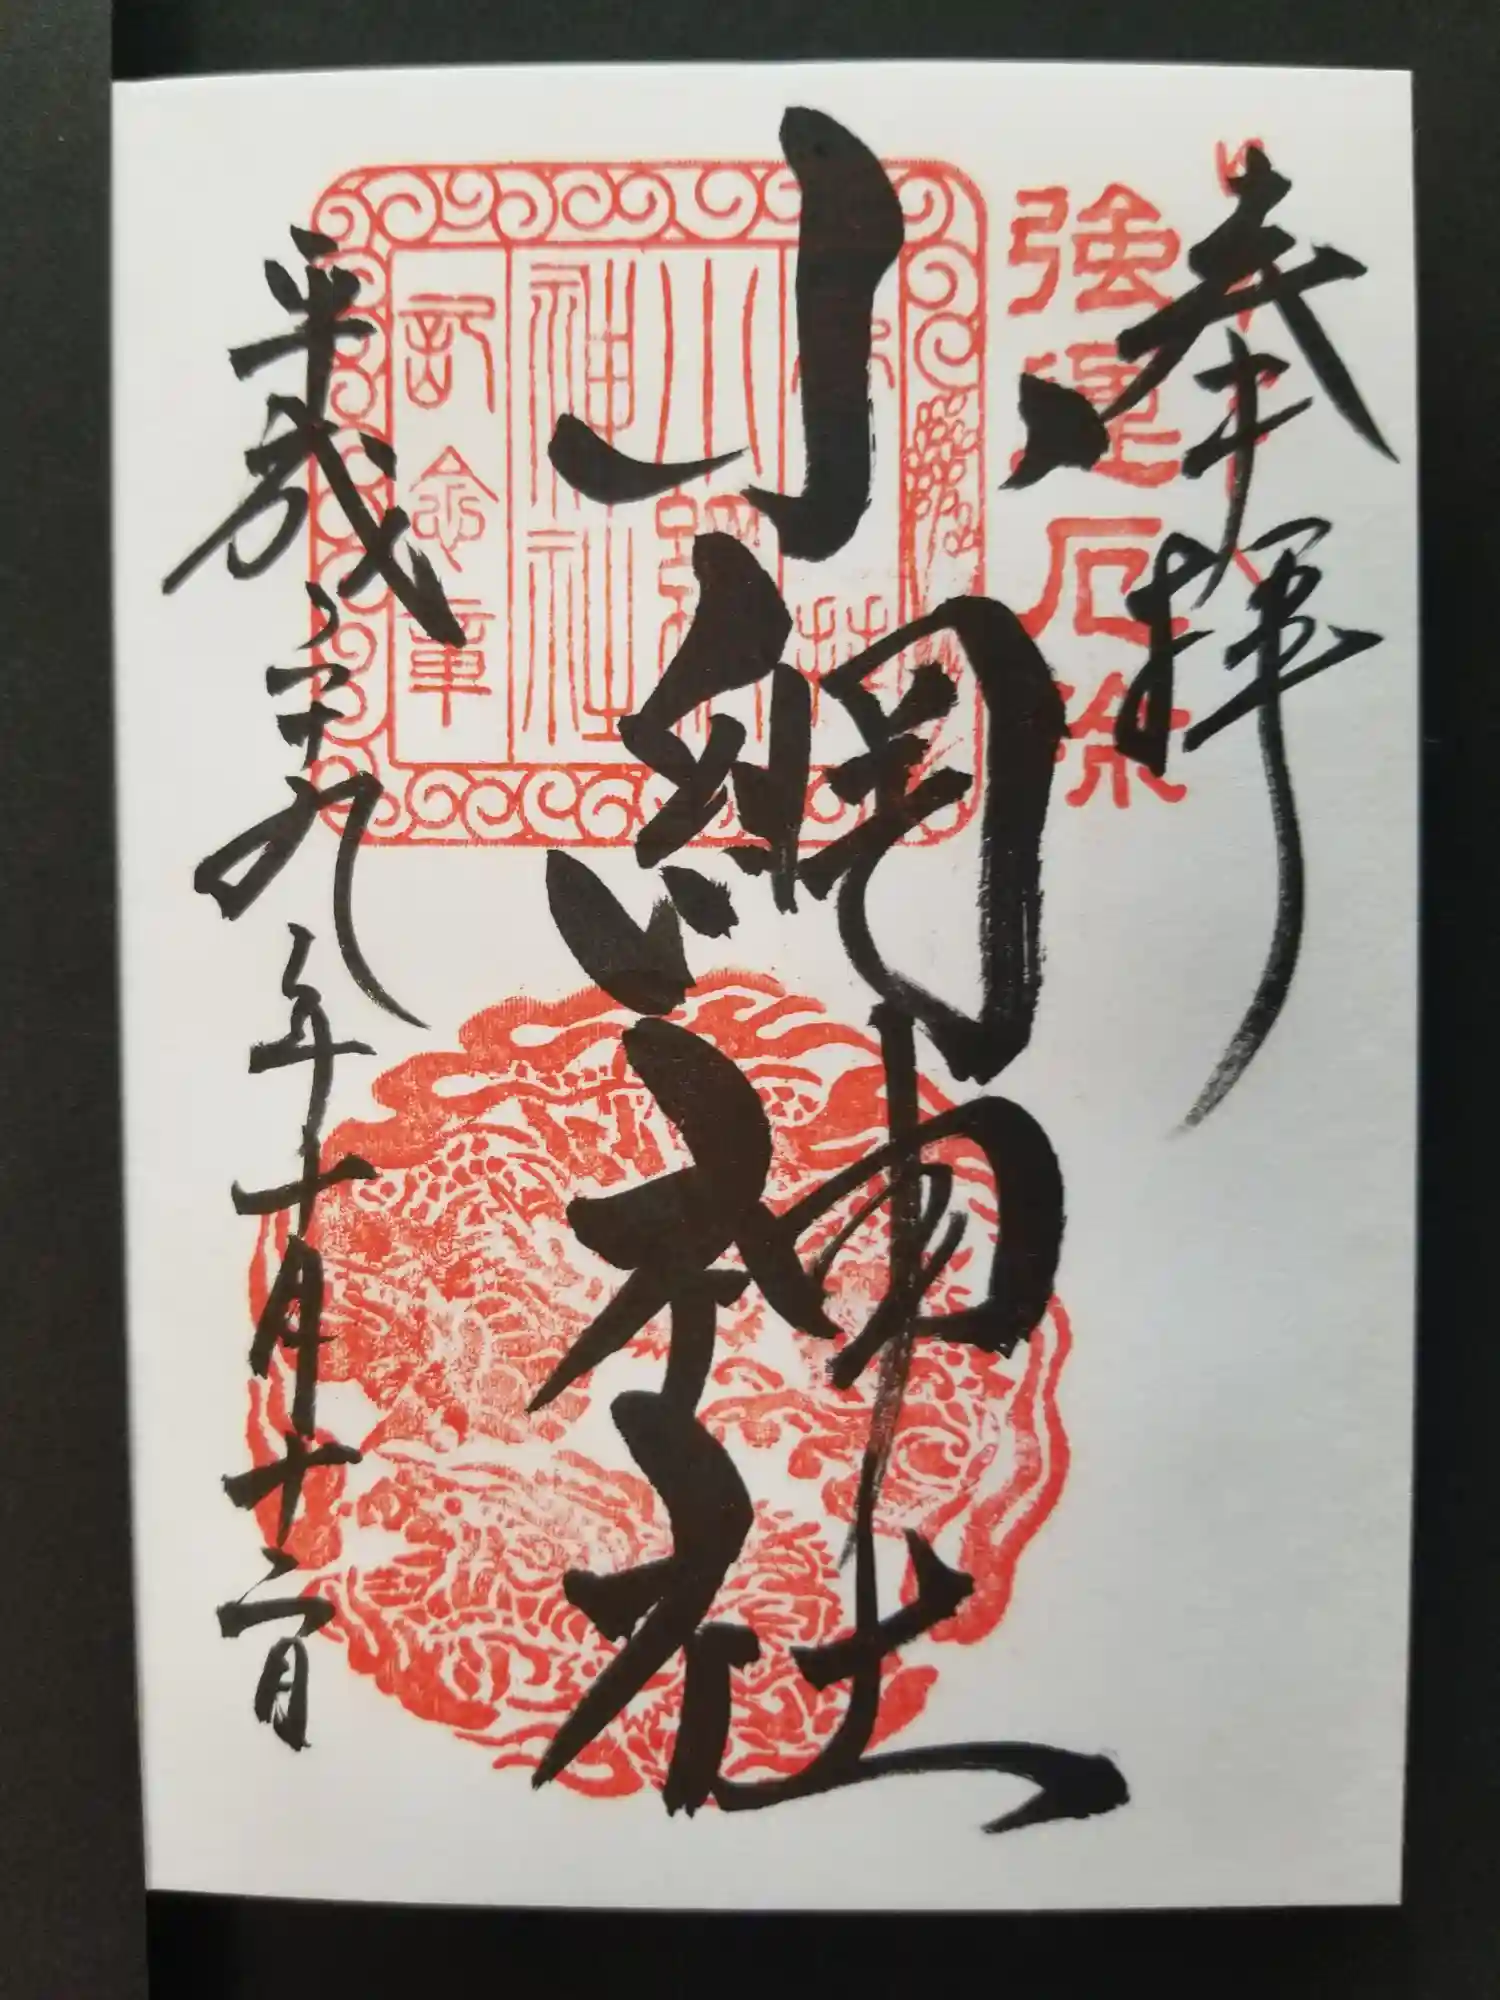 奉拝
強運厄除
小網神社
小網
神社
記念章
平成二十九年十月十二日